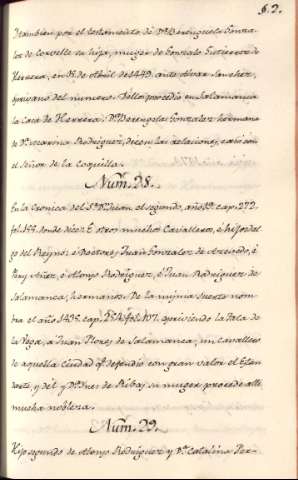 62.
Itambien por el testamento de Dª Berenguela Gonza-
lez de Corvelle su hija, muger de Gonzalo Gutierrez de
Herrera, en 18 de Abril de 1449. ante Alvar Sanchez,
escrivano del numero. Dellos procedio en Salamanca
la Casa de Herrera. Dª Berenguela Gonzalez hermana
de Dº Rodriguez, dicen las relaciones, casó con
el Señor de la Coquilla.
Num. 28.
En la Cronica del Sr. Dn. Juan el segundo, año 19. cap. 272,
fol. 155. donde dice: E otros muchos Cavalleros, é hijosdal
go del Reyno: é Doctores Juan Gonzalez de Acevedo, é
Pery Añez, é Alonso Rodriguez, é Juan Rodriguez de
Salamanca, hermanos. De la misma suerte nom-
bra el año 1435. cap. 254. fol. 107. escriviendo la Tala de
la Vega, á Juan Flores de Salamanca, un cavallero
de aquella ciudad q. defendió con gran valor el Estan
darte, y dél y Dª Ines de Ribas su muger procede alli
mucha nobleza.
Num. 29.
Hijo segundo de Alonso Rodriguez y Dª Catalina Per-